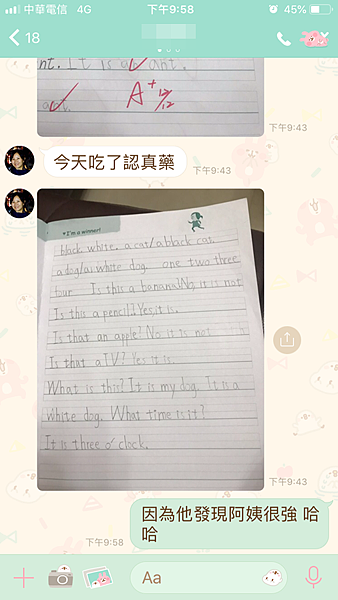 中華電信 4G 下午9:58 45%
18
nt. It is an ant.
A+ 12/12
下午9:43
今天吃了認真藥
下午9:43
*I'm a winner!
black. white. a cat/a black cat.
a dog/a white dog. one two three
four. Is this a banana? No, it is not
Is this a pencil? Yes, it is.
Is that an apple? No it is not
Is that a TV? Yes it is.
What is this? It is my dog. It is a
white dog. What time is it?
It is three o'clock.
下午9:43
因為他發現阿姨很強 哈
哈
下午9:58
Aa